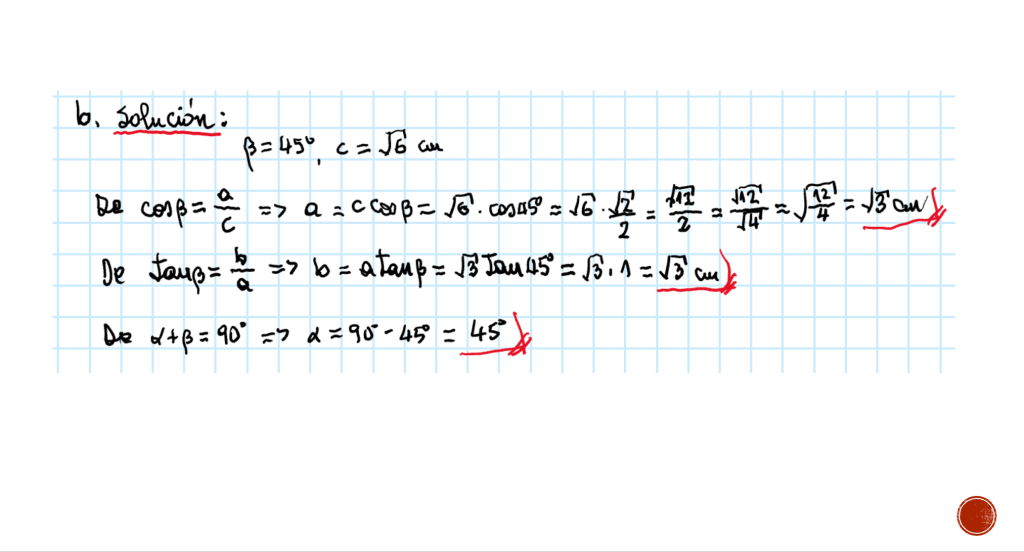 b. Solución:
β = 45°, c = √6 cm
De cosβ = a/c => a = c cosβ = √6 · cos45° = √6 · √2/2 = √12/2 = √12/√4 = √(12/4) = √3 cm
De tanβ = b/a => b = a tanβ = √3 Tan 45° = √3 · 1 = √3 cm
De α+β = 90° => α = 90° - 45° = 45°